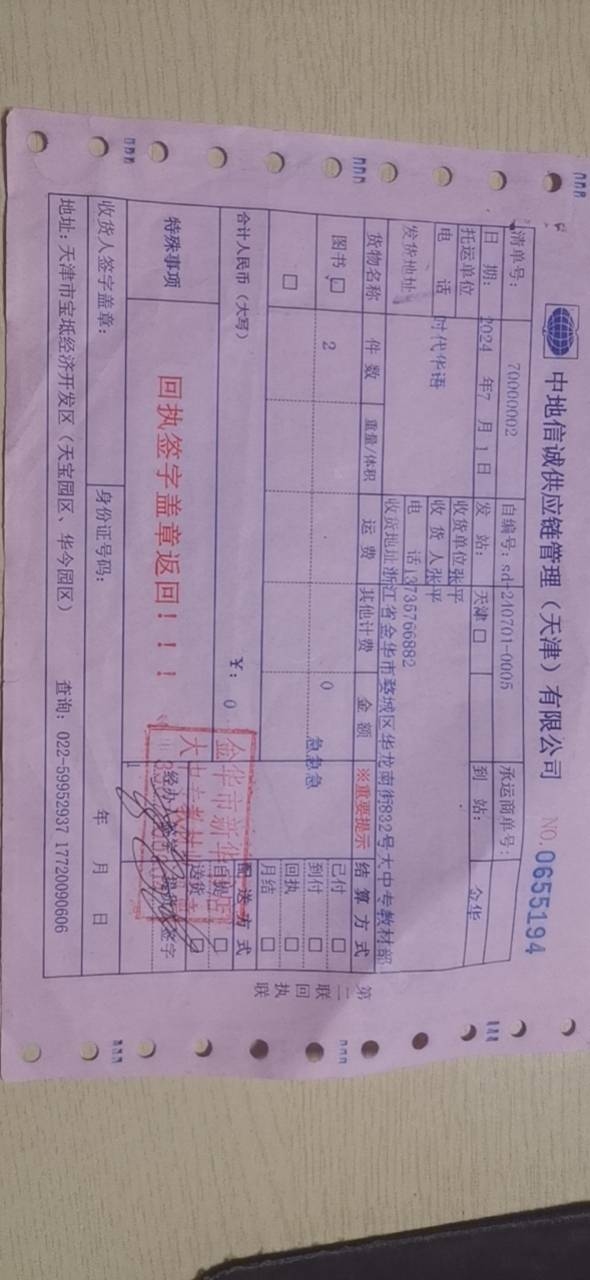 中地信诚供应链管理（天津）有限公司 NO.0655194
清单号： 70000002 自编号：sd-240701-0005 承运商单号：
日 期： 2024 年7 月 1 日 发 站： 天津 □ 到 站： 金华
托运单位 时代华语 收货单位张平
电 话 收 货 人张平
发货地址 电 话13735766882
收货地址浙江省金华市婺城区华龙南街832号大中专教材部
货物名称 件 数 重量/体积 运 费 其他计费 金 额 ※重要提示 结 算 方 式
图书 □ 2 0 急急急 已付 □
到付 □
□ 回执 □
月结 □
合计人民币（大写） ¥： 0 配 送 方 式
自提 □
送货 □
特殊事项 回执签字盖章返回！！！
金华市新华
收货人签字盖章： 身份证号码： 年 月 日
地址：天津市宝坻经济开发区（天宝园区、华今园区） 查询：022-59952937 17720090606
第二联 回执联